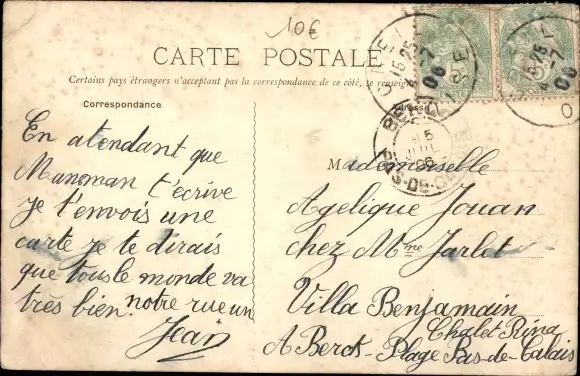 10€
CARTE POSTALE
Certains pays étrangers n'acceptant pas la correspondance de ce côté, se renseign
Correspondance
Adresse
En atendant que
Manman t'écrive
je t'envois une
carte je te dirais
que tous le monde va
très bien. notre rue un
Jean
Mademoiselle
Agelique Jouan
chez Mme Jarlet
Villa Benjamain
Chalet Rina
A Berck-Plage Pas-de-Calais
OISE
15 25
4 -7
06
OISE
15 25
4 -7
06
BERCK
5
JUIL
06
PAS-DE-CALAIS